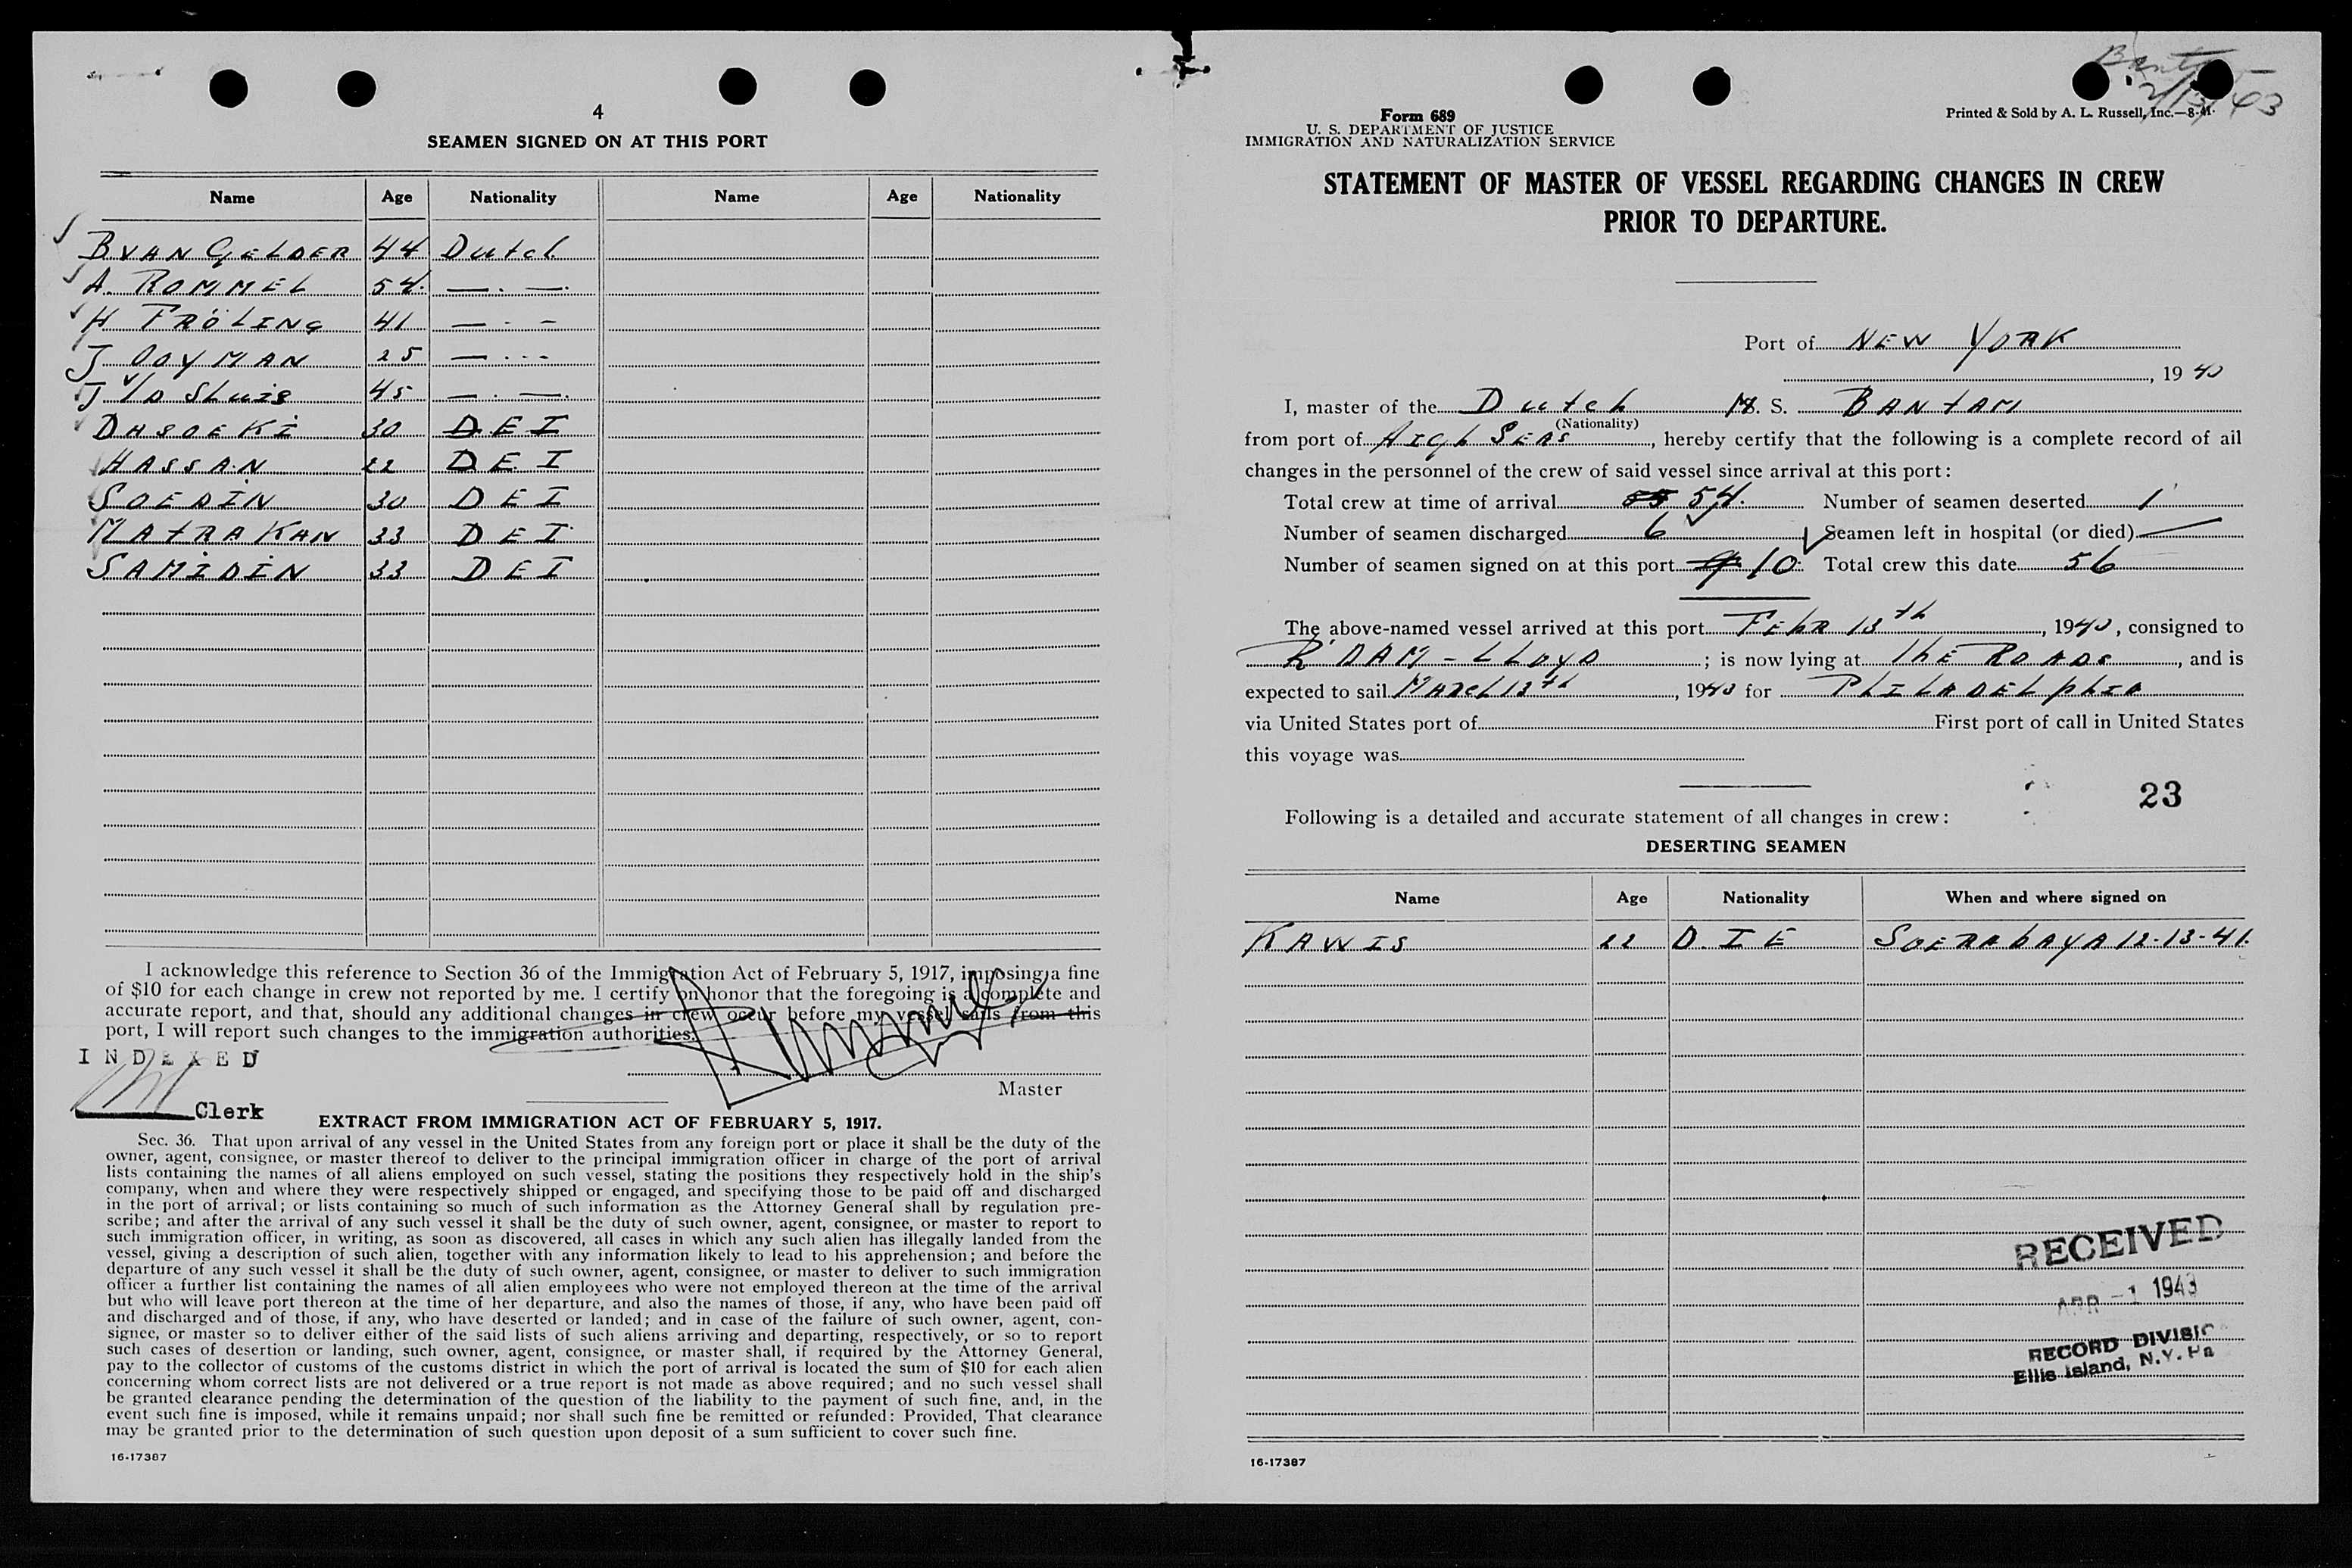 4
SEAMEN SIGNED ON AT THIS PORT
Name Age Nationality Name Age Nationality
B VAN GELDER 44 Dutch
A. ROMMEL 54. — . —.
H FRÖLING 41 — . –
J OOYMAN 25 — . . .
J V/D SLuis 45 — . —.
DASOEKI 30 DEI
HASSAN 22 D E I
SOEDIN 30 D E I
MATRAKAN 33 D E I
SAMIDIN 33 D E I
I acknowledge this reference to Section 36 of the Immigration Act of February 5, 1917, imposing a fine
of $10 for each change in crew not reported by me. I certify on honor that the foregoing is a complete and
accurate report, and that, should any additional changes in crew occur before my vessel sails from this
port, I will report such changes to the immigration authorities.
INDEXED
Master
Clerk
EXTRACT FROM IMMIGRATION ACT OF FEBRUARY 5, 1917.
Sec. 36. That upon arrival of any vessel in the United States from any foreign port or place it shall be the duty of the
owner, agent, consignee, or master thereof to deliver to the principal immigration officer in charge of the port of arrival
lists containing the names of all aliens employed on such vessel, stating the positions they respectively hold in the ship's
company, when and where they were respectively shipped or engaged, and specifying those to be paid off and discharged
in the port of arrival; or lists containing so much of such information as the Attorney General shall by regulation pre-
scribe; and after the arrival of any such vessel it shall be the duty of such owner, agent, consignee, or master to report to
such immigration officer, in writing, as soon as discovered, all cases in which any such alien has illegally landed from the
vessel, giving a description of such alien, together with any information likely to lead to his apprehension; and before the
departure of any such vessel it shall be the duty of such owner, agent, consignee, or master to deliver to such immigration
officer a further list containing the names of all alien employees who were not employed thereon at the time of the arrival
but who will leave port thereon at the time of her departure, and also the names of those, if any, who have been paid off
and discharged and of those, if any, who have deserted or landed; and in case of the failure of such owner, agent, con-
signee, or master so to deliver either of the said lists of such aliens arriving and departing, respectively, or so to report
such cases of desertion or landing, such owner, agent, consignee, or master shall, if required by the Attorney General,
pay to the collector of customs of the customs district in which the port of arrival is located the sum of $10 for each alien
concerning whom correct lists are not delivered or a true report is not made as above required; and no such vessel shall
be granted clearance pending the determination of the question of the liability to the payment of such fine, and, in the
event such fine is imposed, while it remains unpaid; nor shall such fine be remitted or refunded: Provided, That clearance
may be granted prior to the determination of such question upon deposit of a sum sufficient to cover such fine.
16-17387
Bantam
2/13/43
Form 689
Printed & Sold by A. L. Russell, Inc.—8-41
U. S. DEPARTMENT OF JUSTICE
IMMIGRATION AND NATURALIZATION SERVICE
STATEMENT OF MASTER OF VESSEL REGARDING CHANGES IN CREW
PRIOR TO DEPARTURE.
Port of NEW YORK
, 19 43
I, master of the Dutch M. S. BANTAM
(Nationality)
from port of HIGH SEAS, hereby certify that the following is a complete record of all
changes in the personnel of the crew of said vessel since arrival at this port:
Total crew at time of arrival 54. Number of seamen deserted 1
Number of seamen discharged 6 Seamen left in hospital (or died) —
Number of seamen signed on at this port 10 Total crew this date 56
The above-named vessel arrived at this port FEBR 13th, 1943, consigned to
R'DAM - LLOYD ; is now lying at THE ROADS, and is
expected to sail MARCH 13th, 1943 for PHILADELPHIA
via United States port of First port of call in United States
this voyage was
23
Following is a detailed and accurate statement of all changes in crew:
DESERTING SEAMEN
Name Age Nationality When and where signed on
KAWIS 22 D. I E SOERABAYA 12-13-41.
RECEIVED
APR -1 1943
RECORD DIVISIO
Ellis Island, N.Y. Ha
16-17387